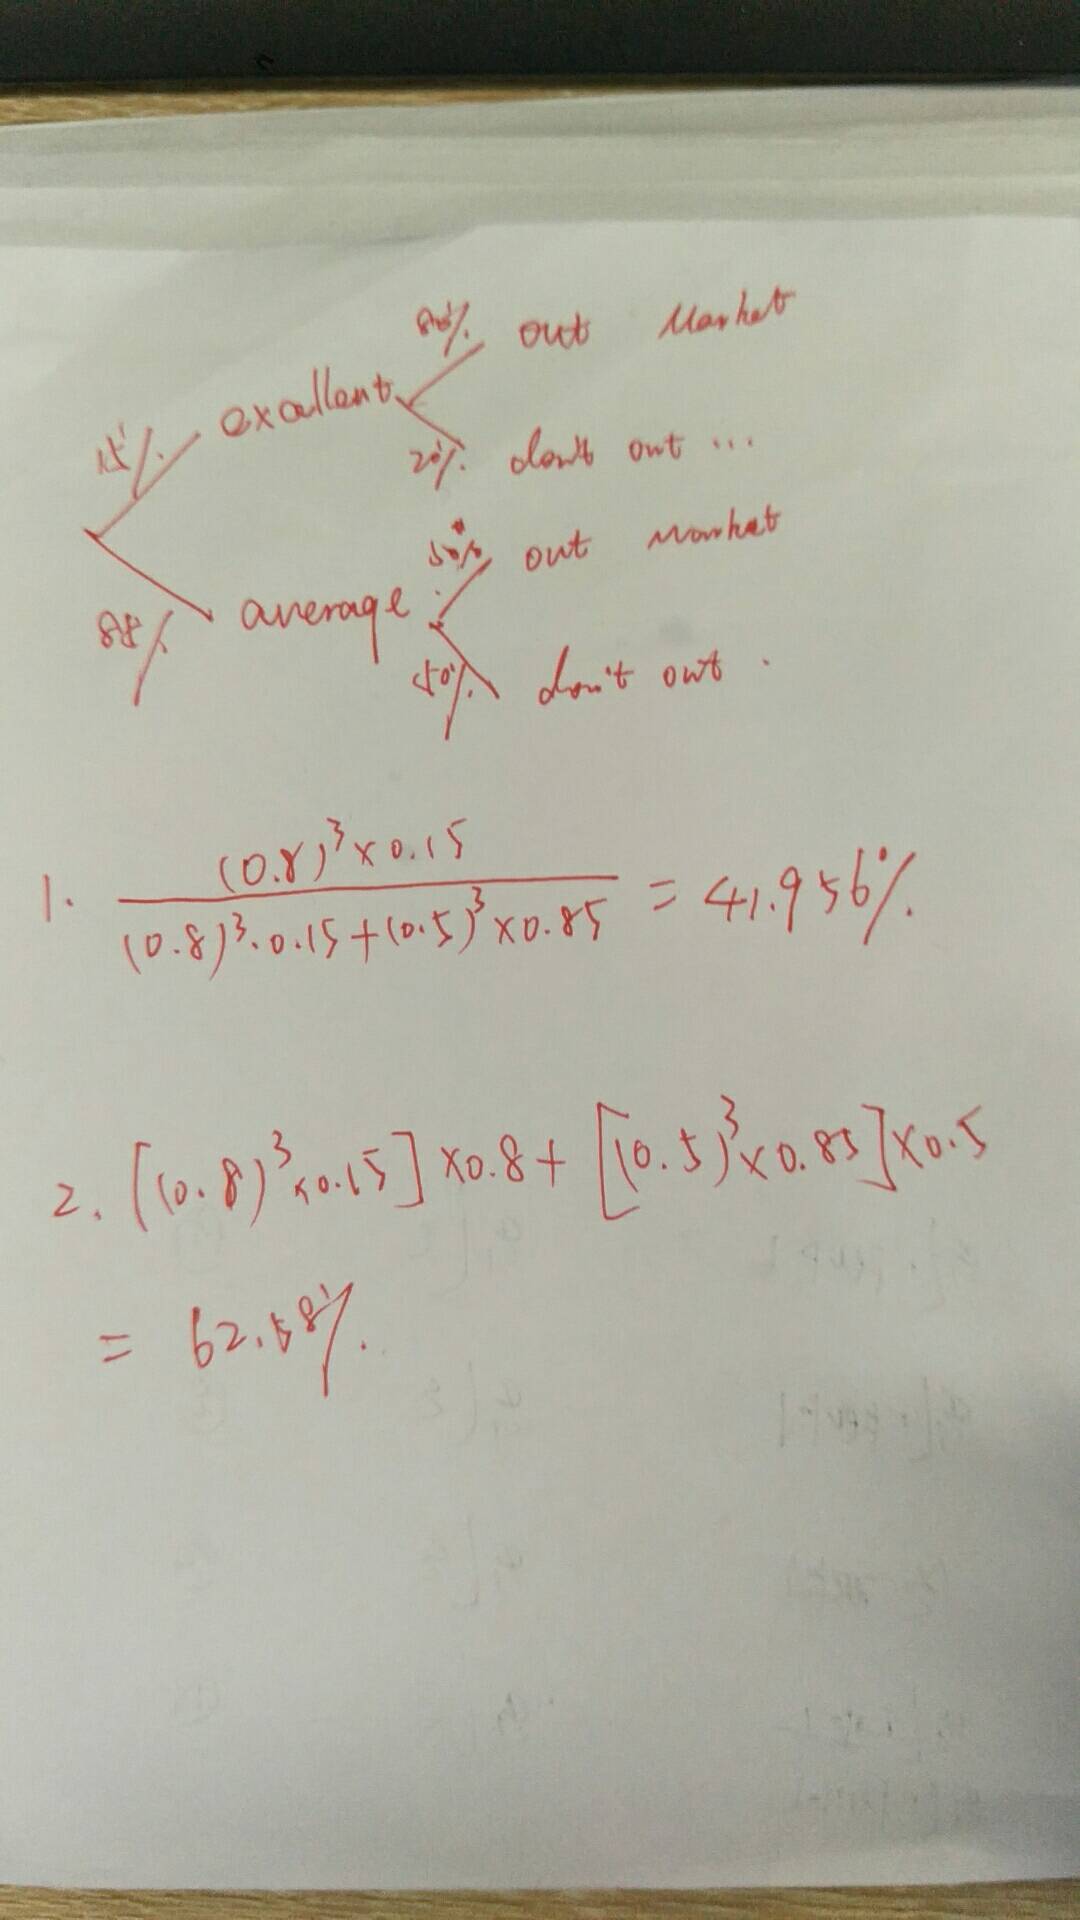 80% out Market
15% excellent
20% don't out ...
50% out Market
88% average
50% don't out .
(0.8)³×0.15
1. ———— = 41.956%.
(0.8)³·0.15+(0.5)³×0.85
2. [(0.8)³×0.15]×0.8+[(0.5)³×0.85]×0.5
= 62.58%.